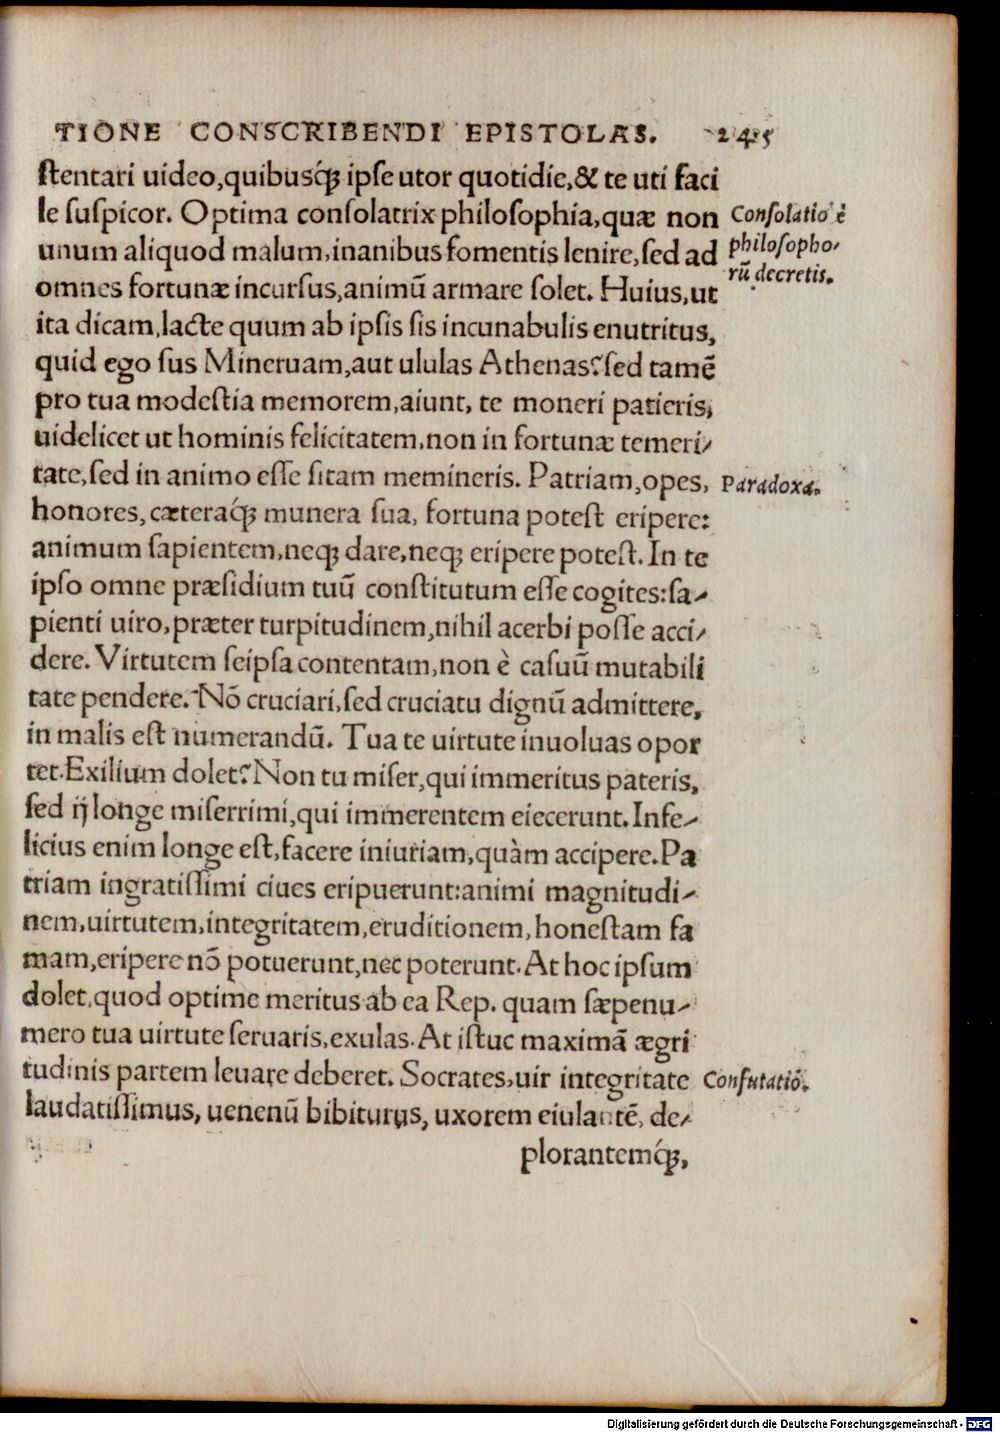 TIONE CONSCRIBENDI EPISTOLAS. 245
ſtentari uideo,quibusq́ꝫ ipſe utor quotidie,& te uti faci
le ſuſpicor. Optima conſolatrix philoſophia,quæ non
Conſolatio è
unum aliquod malum,inanibus fomentis lenire,ſed ad
philoſopho/
omnes fortunæ incurſus,animū armare ſolet. Huius,ut
rū decretis.
ita dicam,lacte quum ab ipſis ſis incunabulis enutritus,
quid ego ſus Mineruam,aut ululas Athenas? ſed tamē
pro tua modeſtia memorem,aiunt, te moneri patieris,
uidelicet ut hominis felicitatem,non in fortunæ temeri/
tate,ſed in animo eſſe ſitam memineris. Patriam,opes,
Paradoxa.
honores,cæteraq́ꝫ munera ſua, fortuna poteſt eripere:
animum ſapientem,neqꝫ dare,neqꝫ eripere poteſt. In te
ipſo omne præſidium tuū conſtitutum eſſe cogites:ſa/
pienti uiro,præter turpitudinem,nihil acerbi poſſe acci/
dere. Virtutem ſeipſa contentam,non è caſuū mutabili
tate pendere. Nō cruciari,ſed cruciatu dignū admittere,
in malis eſt numerandū. Tua te uirtute inuoluas opor
tet.Exilium dolet? Non tu miſer,qui immeritus pateris,
ſed ij longe miſerrimi,qui immerentem eiecerunt.Infe/
licius enim longe eſt,facere iniuriam,quàm accipere.Pa
triam ingratiſſimi ciues eripuerunt:animi magnitudi/
nem,uirtutem,integritatem,eruditionem,honeſtam fa
mam,eripere nō potuerunt,nec poterunt.At hoc ipſum
dolet,quod optime meritus ab ea Rep. quam ſæpenu/
mero tua uirtute ſeruaris,exulas.At iſtuc maximā ægri
tudinis partem leuare deberet. Socrates,uir integritate
Confutatió.
laudatiſſimus, uenenū bibiturus, uxorem eiulantē, de/
plorantemq́ꝫ,
Digitalisierung gefördert durch die Deutsche Forschungsgemeinschaft - DFG